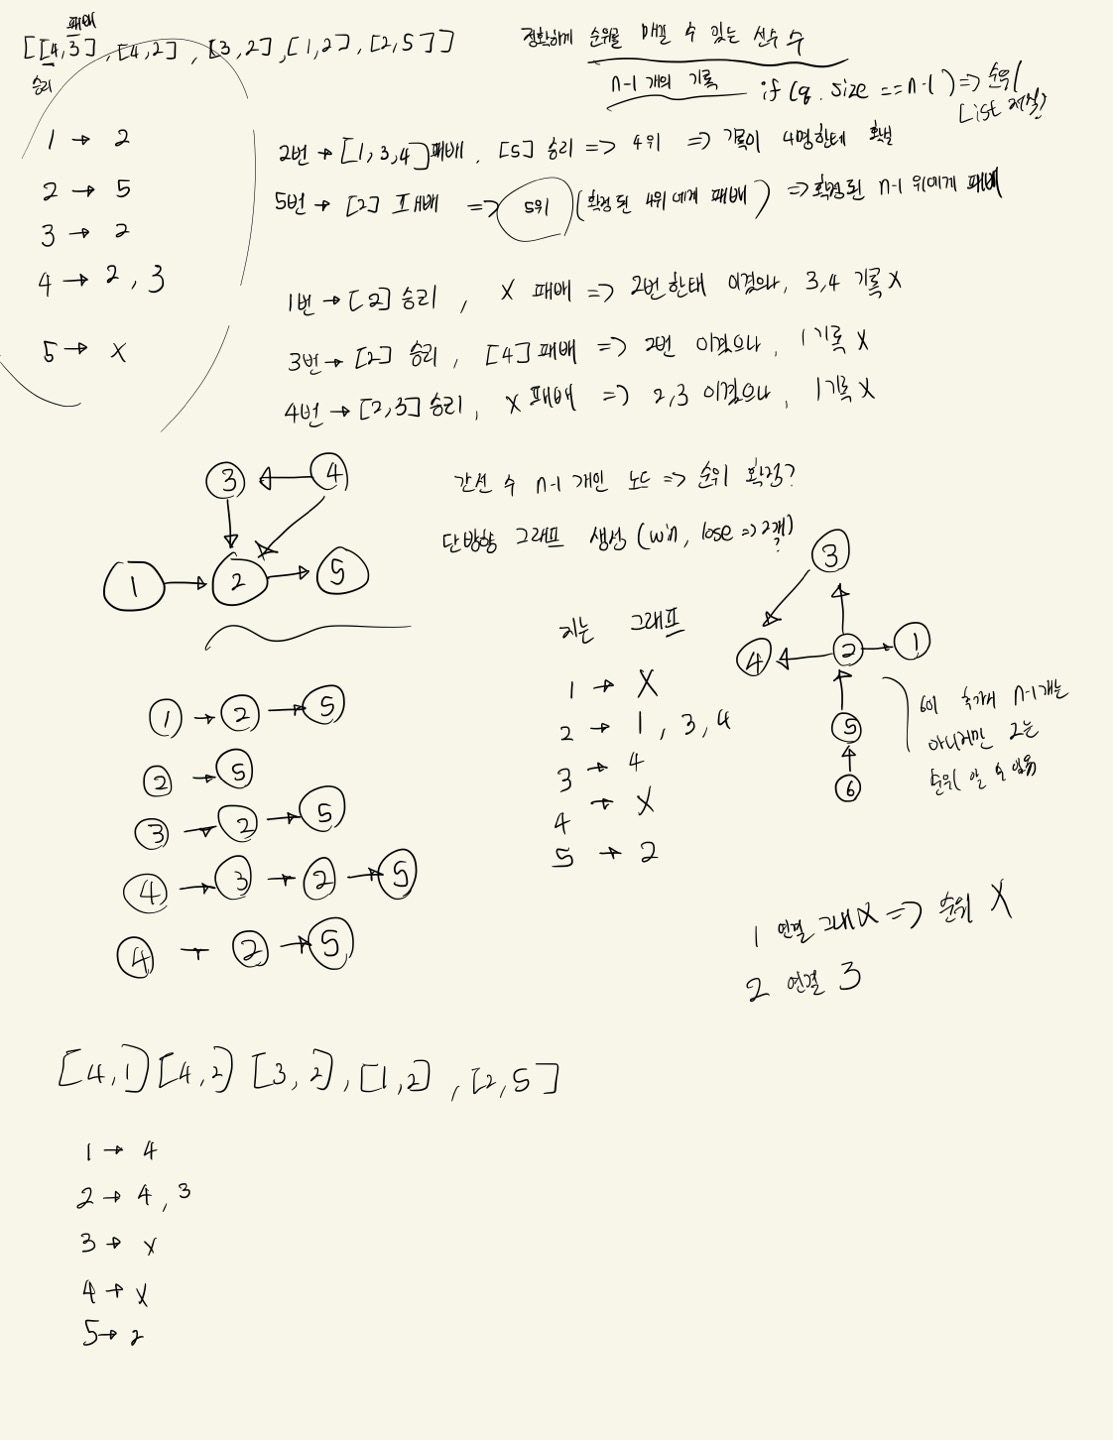 패배
[[4,3], [4,2], [3,2], [1,2], [2,5]]
승리
정확하게 순위를 매길 수 있는 선수 수
n-1 개의 기록 if (q. size == n-1) => 순위
1 → 2
2 → 5
3 → 2
4 → 2, 3
5 → X
2번 → [1, 3, 4] 패배, [5] 승리 => 4위 => 기록이 4명한테 확보
5번 → [2] 패배 => 5위 (확정된 4위에게 패배) => 확정된 n-1 위에게 패배
1번 → [2] 승리, X 패배 => 2번한태 이겼으나, 3,4 기록 X
3번 → [2] 승리, [4] 패배 => 2번 이겼으나, 1 기록 X
4번 → [2,3] 승리, X 패배 => 2,3 이겼으나, 1 기록 X
3 4
1 2 5
간선 수 n-1 개인 노드 => 순위 확정?
단방향 그래프 생성 (win, lose => 2개?)
3
4 2 1
5
6
6이 추가돼 n-1개는
아니지만 2는
순위 알 수 있음
1 → 2 → 5
2 → 5
3 → 2 → 5
4 → 3 → 2 → 5
4 → 2 → 5
지는 그래프
1 → X
2 → 1, 3, 4
3 → 4
4 → X
5 → 2
1 연결 => 순위 X
2 연결 3
[4,1] [4,2] [3,2], [1,2], [2,5]
1 → 4
2 → 4, 3
3 → X
4 → X
5 → 2